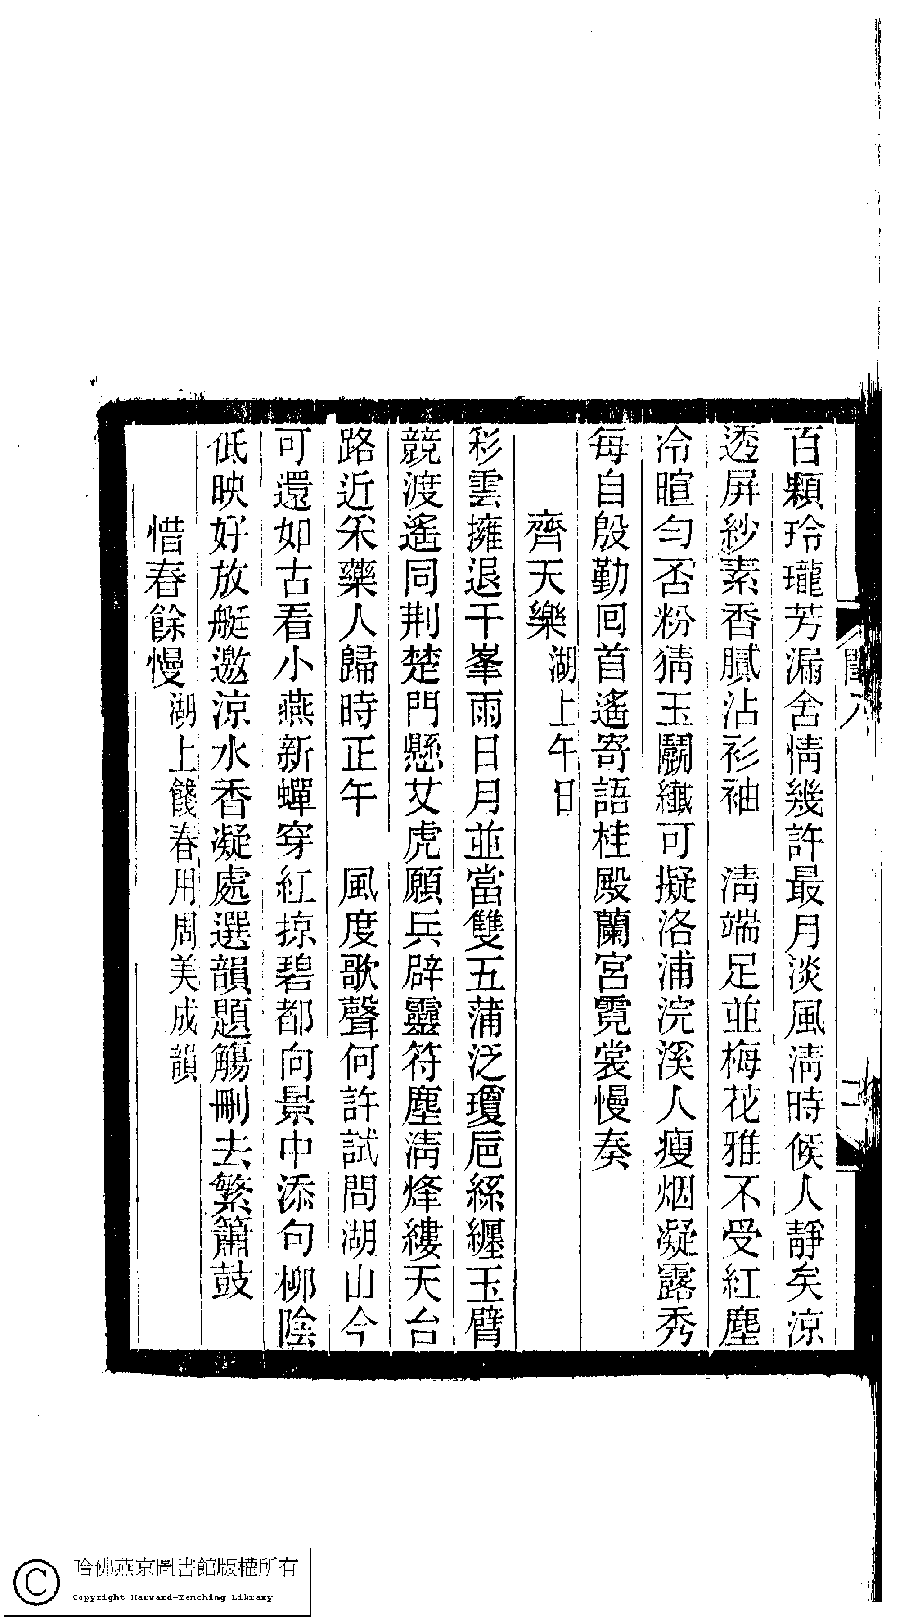 百顆玲瓏芳漏舍情幾許最月淡風淸時候人靜矣涼
透屏紗素香膩沾衫袖　淸端足並梅花雅不受紅塵
冷暄勻否粉猜玉鬭纖可擬洛浦浣溪人瘦烟凝露秀
每自殷勤回首遙寄語桂殿蘭宮霓裳慢奏
齊天樂湖上午日
彩雲擁退千峯雨日月並當雙五蒲泛瓊巵絲纏玉臂
競渡遙同荆楚門懸艾虎願兵辟靈符塵淸烽縷天台
路近采藥人歸時正午　風度歌聲何許試問湖山今
可還如古看小燕新蟬穿紅掠碧都向景中添句柳陰
低映好放艇邀涼水香凝處選韻題觴刪去繁簫鼓
惜春餘慢湖上餞春用周美成韻
哈佛燕京圖書館版權所有
Copyright Harvard-Yenching Library